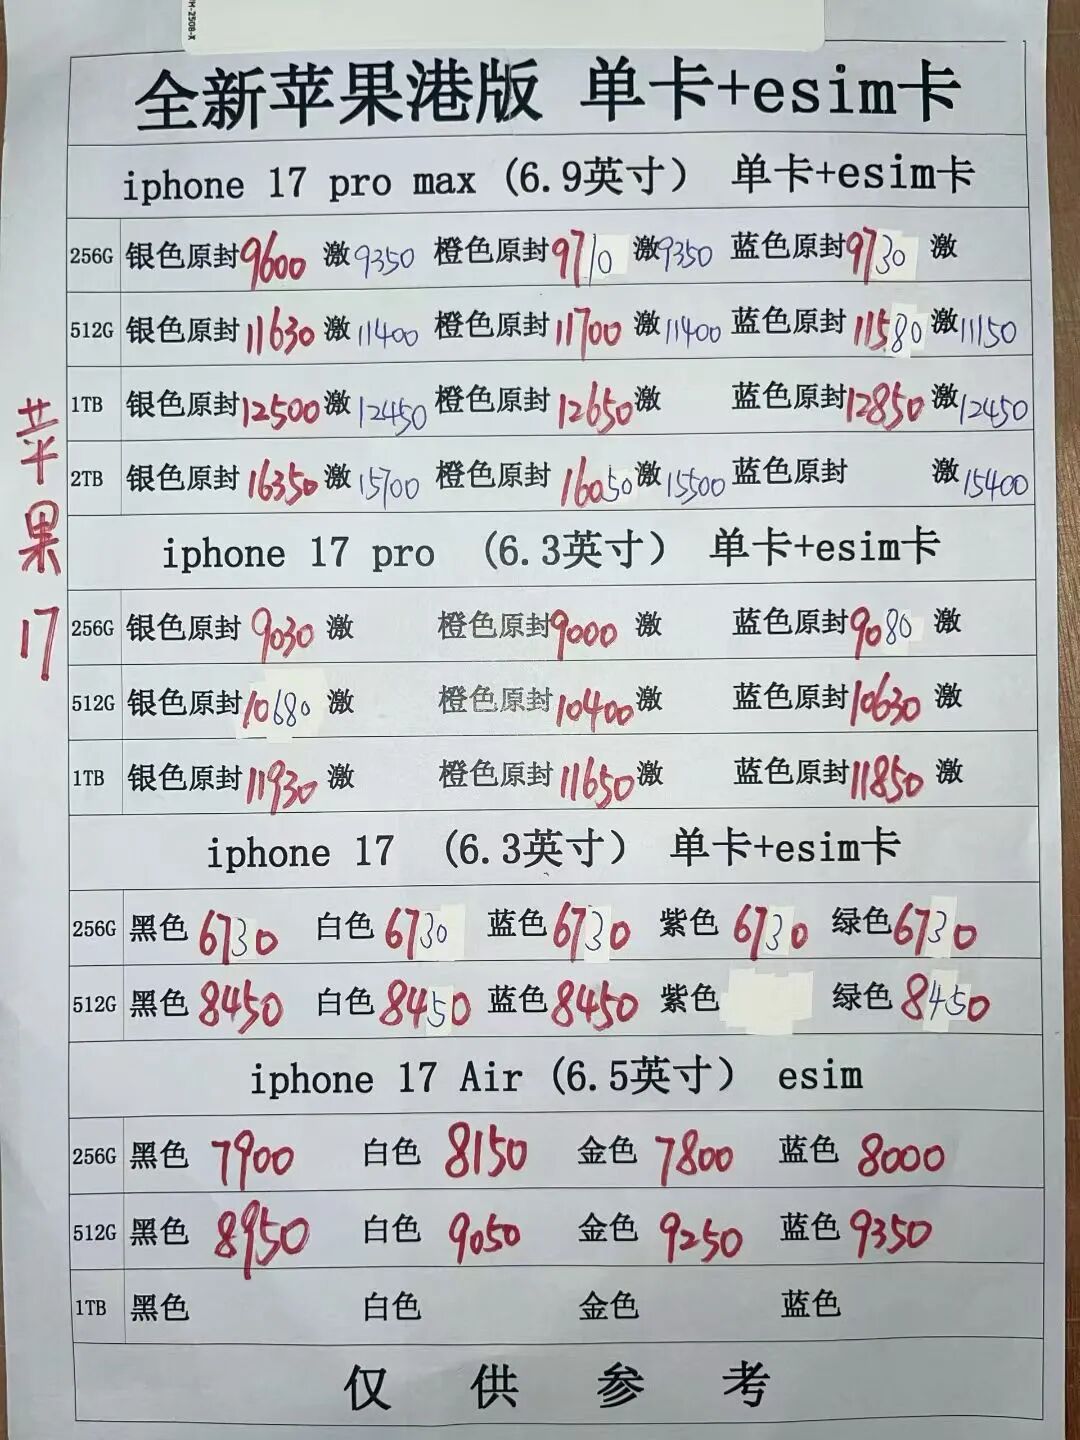 M-2508-X
全新苹果港版 单卡+esim卡
iphone 17 pro max (6.9英寸) 单卡+esim卡
256G 银色原封9600 激9350 橙色原封9710 激9350 蓝色原封9730 激
512G 银色原封11630 激11400 橙色原封11700 激11400 蓝色原封11580 激11150
1TB 银色原封12500 激12450 橙色原封12650 激 蓝色原封12850 激12450
2TB 银色原封16350 激15700 橙色原封16050 激15500 蓝色原封 激15400
苹果17
iphone 17 pro (6.3英寸) 单卡+esim卡
256G 银色原封 9030 激 橙色原封9000 激 蓝色原封9080 激
512G 银色原封10680 激 橙色原封10400 激 蓝色原封10630 激
1TB 银色原封11930 激 橙色原封11650 激 蓝色原封11850 激
iphone 17 (6.3英寸) 单卡+esim卡
256G 黑色 6730 白色 6730 蓝色 6730 紫色 6730 绿色 6730
512G 黑色 8450 白色 8450 蓝色 8450 紫色 绿色 8450
iphone 17 Air (6.5英寸) esim
256G 黑色 7900 白色 8150 金色 7800 蓝色 8000
512G 黑色 8950 白色 9050 金色 9250 蓝色 9350
1TB 黑色 白色 金色 蓝色
仅供参考